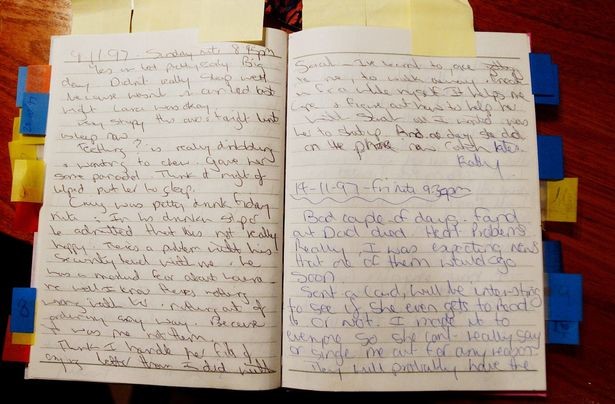 9-11-97. Sunday nite 8.45pm
Yes in bed pretty early. Big
day. Didn't really sleep well
because wasn't in own bed last
night. Laura was okay.
asleep now.
Teething? is really dribbling
& wanting to chew. Gave her
some panadol. Think it might of
helped put her to sleep.
Craig was pretty drunk Friday
nite. In his drunken stupor
he admitted that he's not really
happy. There's a problem with his
security level with me. he
has a mortal fear about Laura
me well I know theres nothing
wrong with us. nothing out of
ordinary any way. Because
it was me not them.
Think I handle her fits of
crying better than I did with
Sarah - I've learnt to give
me, to walk away & treat
for a while myself it helps me
cope & figure out how to help her
with Sarah all I wanted was
her to shut up. And one day she did.
on the phone now Catch ya later.
Kathy
14-11-97 - fri nite 9.30pm
Bad couple of days. Found
out Dad died. Heart Problems
Really, I was expecting news
that one of them would go
soon.
Sent a card, will be interesting
to see if she even gets to read
it or not. I made it to
everyone so she can't really say
or single me out for any reason.
They will probably have the